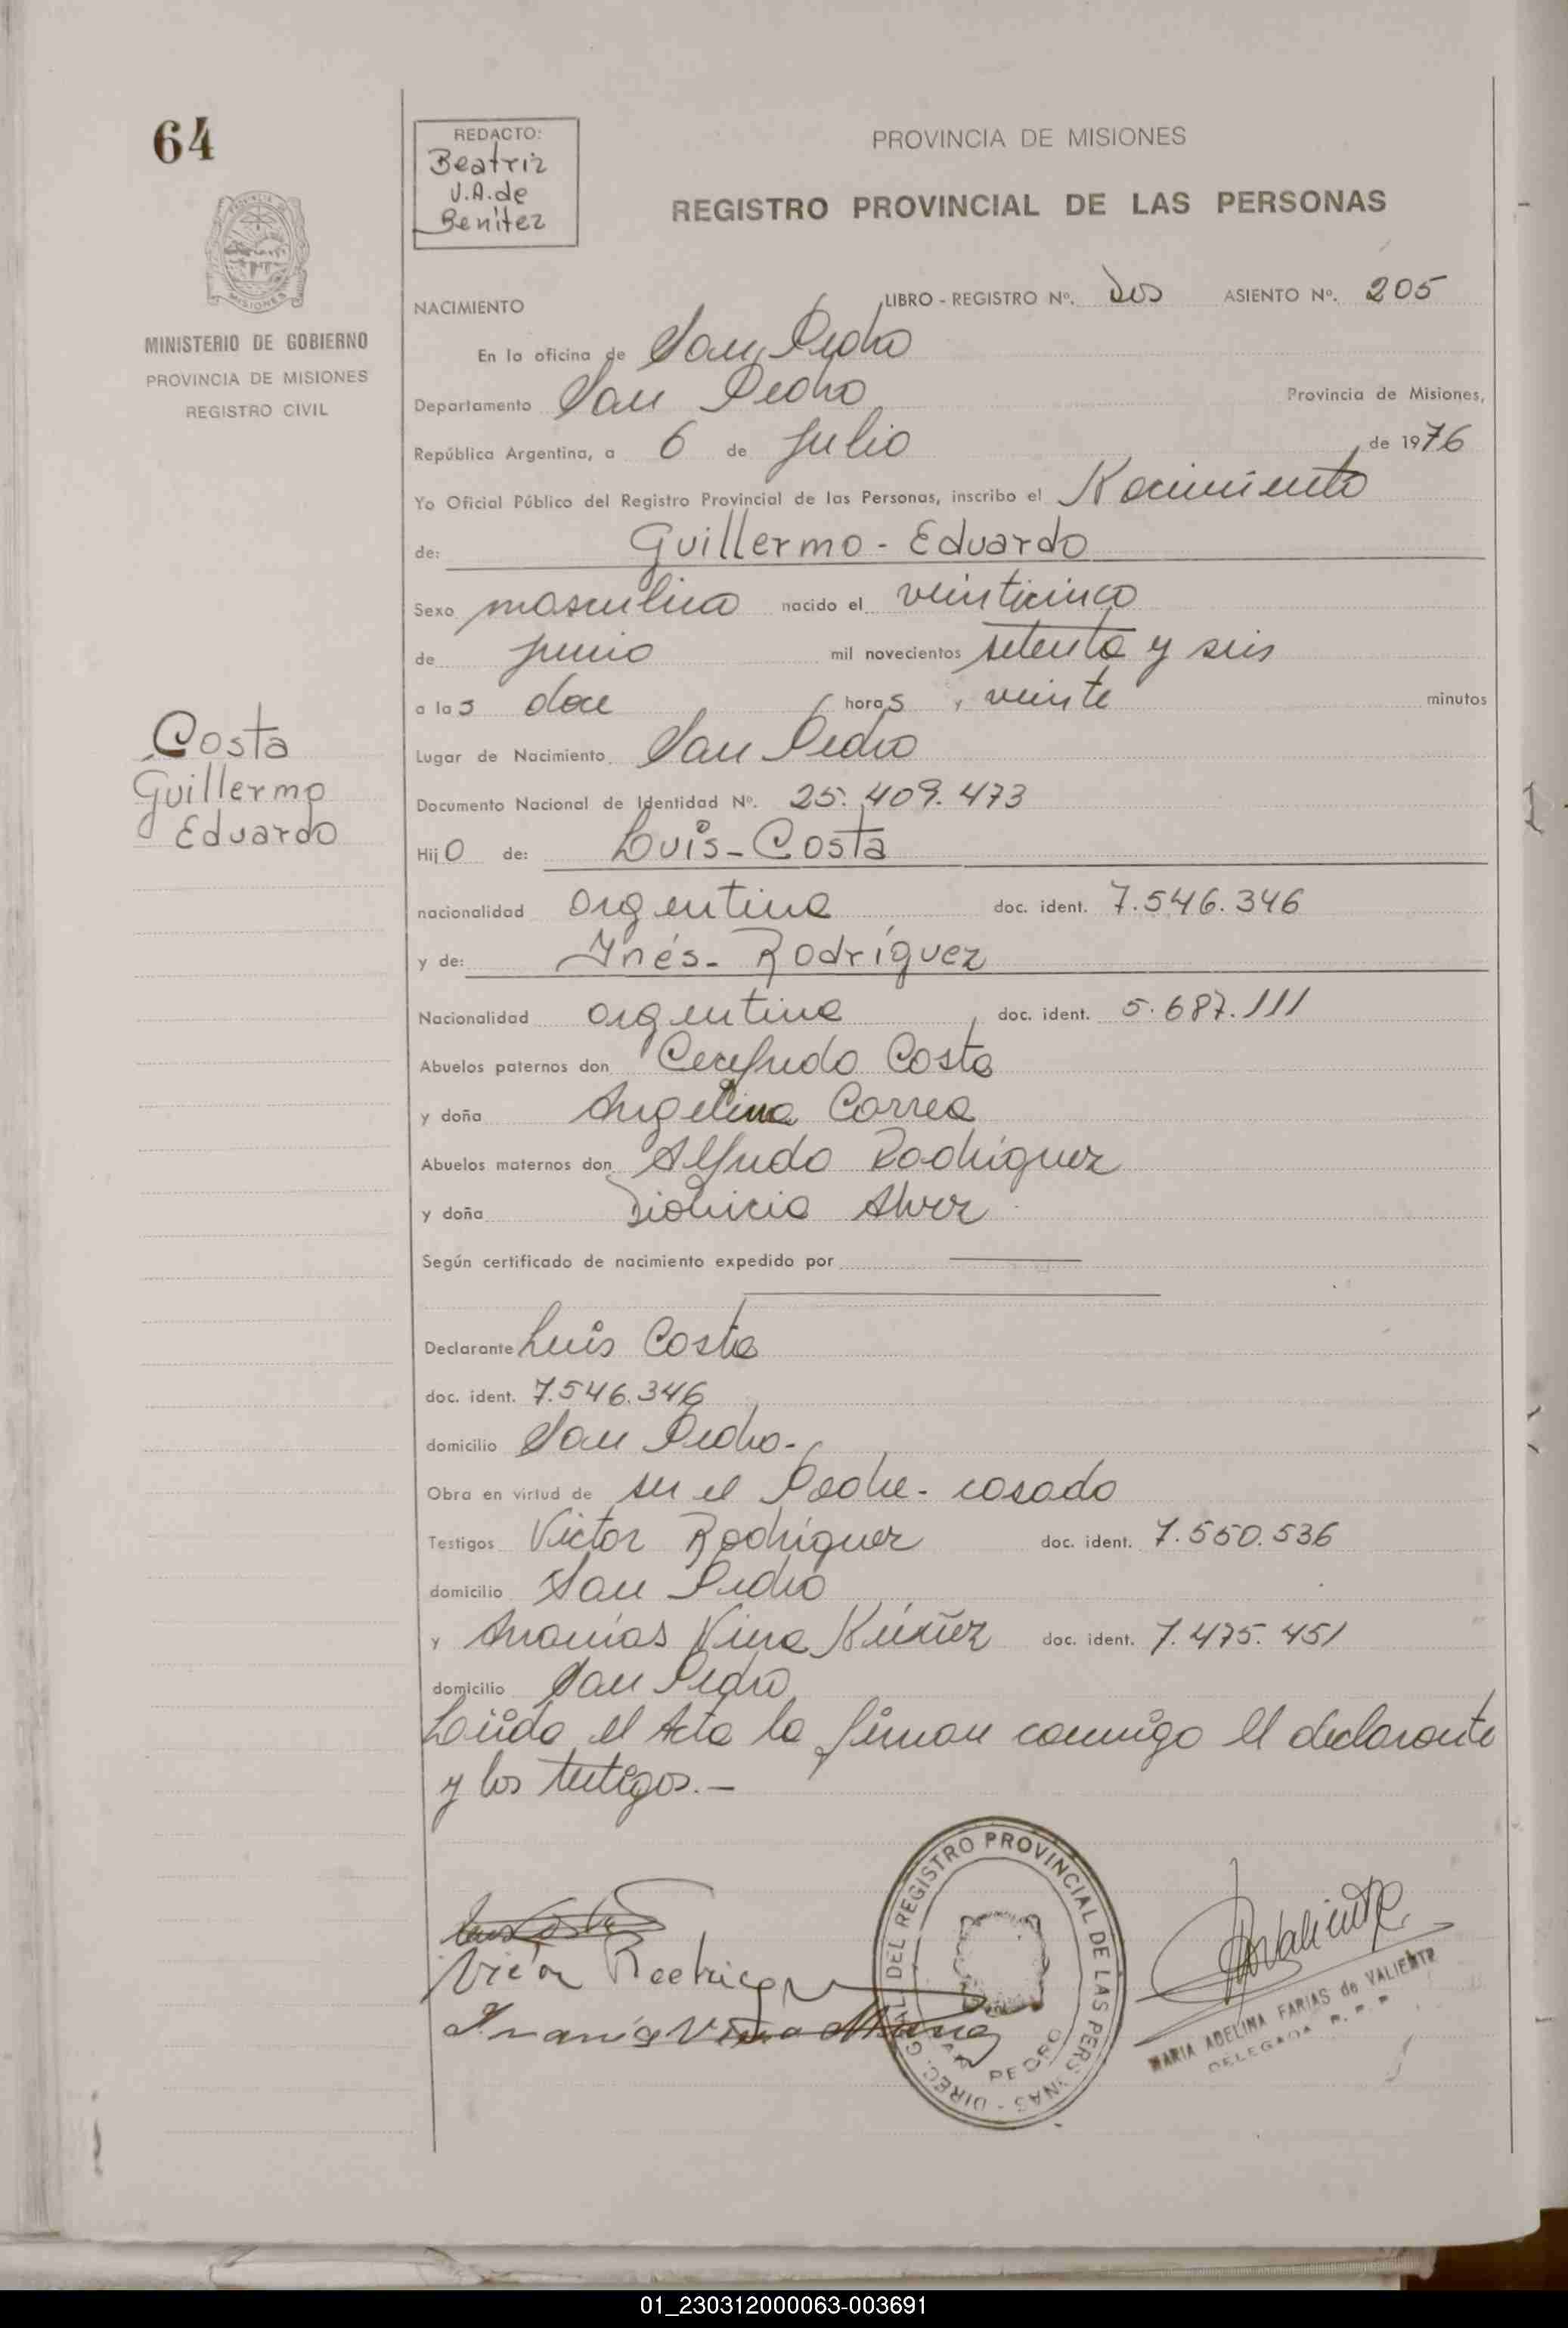 64
REDACTO:
Beatriz
V.A. de
Benítez
PROVINCIA DE MISIONES
REGISTRO PROVINCIAL DE LAS PERSONAS
MISIONES
MINISTERIO DE GOBIERNO
PROVINCIA DE MISIONES
REGISTRO CIVIL
NACIMIENTO LIBRO - REGISTRO Nº. Dos ASIENTO Nº. 205
En la oficina de San Pedro
Departamento San Pedro Provincia de Misiones,
República Argentina, a 6 de Julio de 1976
Yo Oficial Público del Registro Provincial de las Personas, inscribo el Nacimiento
de: Guillermo - Eduardo
Sexo masculino nacido el veinticinco
de junio mil novecientos setenta y seis
a las doce horas, veinte minutos
Costa
Guillermo
Eduardo
Lugar de Nacimiento San Pedro
Documento Nacional de Identidad Nº. 25.409.473
Hijo de: Luis - Costa
nacionalidad argentina doc. ident. 7.546.346
y de: Inés - Rodríguez
Nacionalidad argentina doc. ident. 5.687.111
Abuelos paternos don Costa
y doña Angelina Correa
Abuelos maternos don Alfredo Rodríguez
y doña Dionicia
Según certificado de nacimiento expedido por
Declarante Luis Costa
doc. ident. 7.546.346
domicilio San Pedro.-
Obra en virtud de ser el Padre - casado
Testigos Victor Rodríguez doc. ident. 7.550.536
domicilio San Pedro
y Ananías Vina Núñez doc. ident. 7.475.451
domicilio San Pedro
Leída el Acta la firman conmigo el declarante
y los testigos.-
Luis Costa
Victor Rodriguez
DIREC. GRAL. DEL REGISTRO PROVINCIAL DE LAS PERSONAS
SAN PEDRO
MARIA ADELINA FARIAS de VALIENTE
DELEGADA R. P. P.
01_230312000063-003691